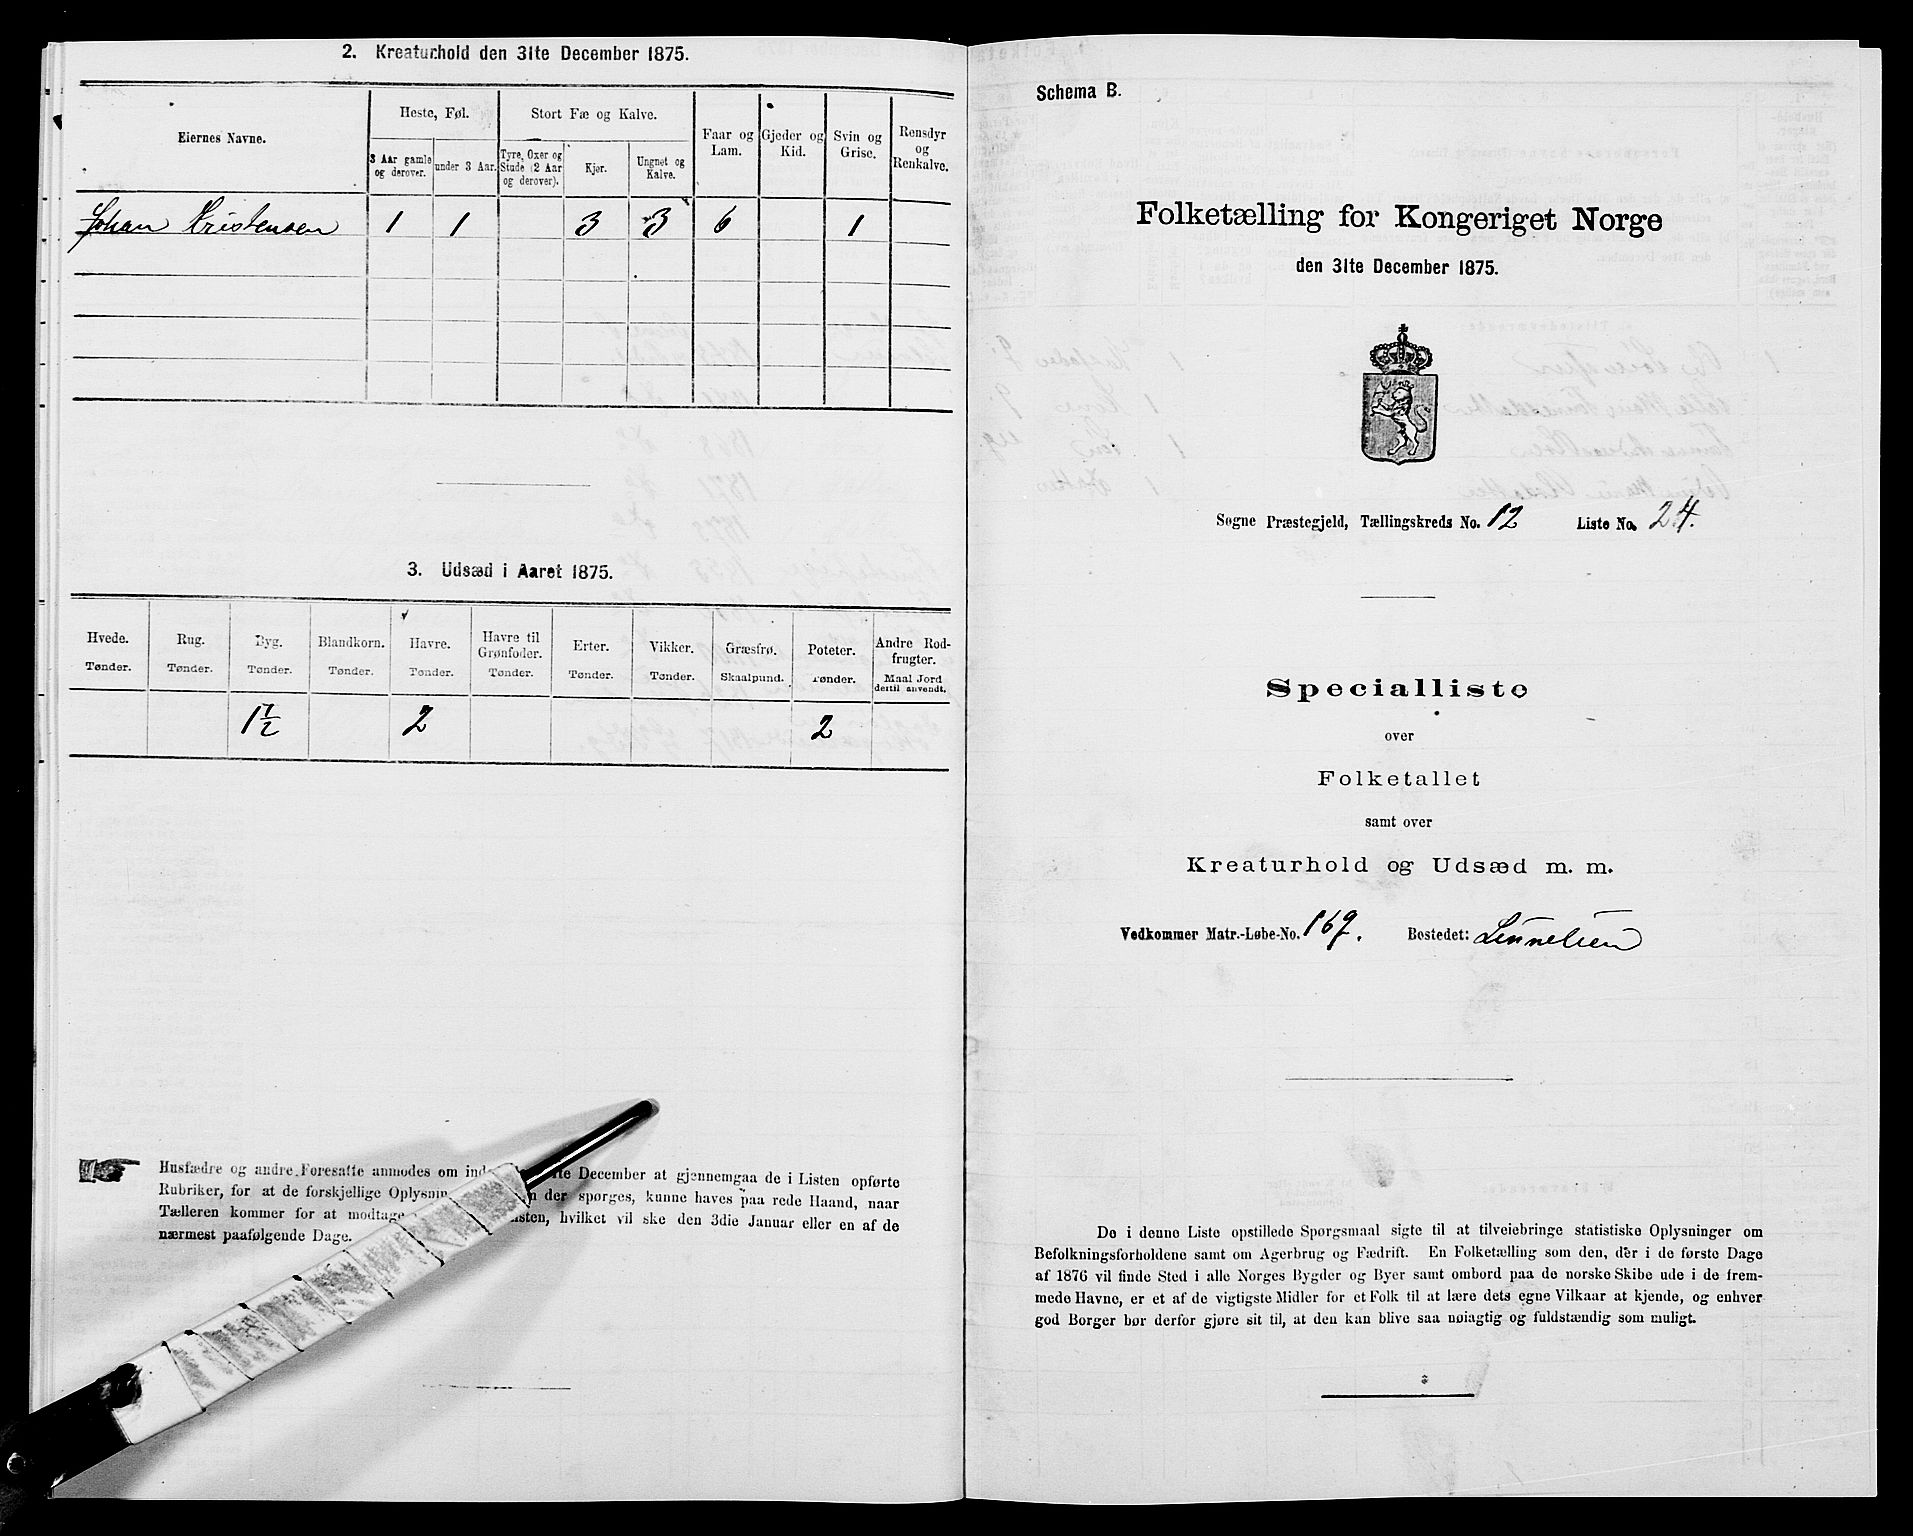 2. Kreaturhold den 31te December 1875.
Eiernes Navne.
Heste, Føl.
Stort Fæ og Kalve.
Faar og Lam.
Gjeder og Kid.
Svin og Grise.
Rensdyr og Renkalve.
3 Aar gamle og derover.
under 3 Aar.
Tyre, Oxer og Stude (2 Aar og derover).
Kjør.
Ungnet og Kalve.
Johan Kristensen 1 1 3 3 6 1
3. Udsæd i Aaret 1875.
Hvede. Rug. Byg. Blandkorn. Havre. Havre til Grønfoder. Erter. Vikker. Græsfrø. Poteter. Andre Rodfrugter.
Tønder. Tønder. Tønder. Tønder. Tønder. Tønder. Tønder. Tønder. Skaalpund. Tønder. Maal Jord dertil anvendt.
1 1/2 2 2
Husfædre og andre Foresatte anmodes om December at gjennemgaa de i Listen opførte
Rubriker, for at de forskjellige der spørges, kunne haves paa rede Haand, naar
Tælleren kommer for at modtage hvilket vil ske den 3die Januar eller en af de
nærmest paafølgende Dage.
Schema B.
Folketælling for Kongeriget Norge
den 31te December 1875.
Sogne Præstegjeld, Tællingskreds No. 12 Liste No. 24.
Specialliste
over
Folketallet
samt over
Kreaturhold og Udsæd m. m.
Vedkommer Matr.-Løbe-No. 167. Bostedet:
De i denne Liste opstillede Spørgsmaal sigte til at tilveiebringe statistiske Oplysninger om
Befolkningsforholdene samt om Agerbrug og Fædrift. En Folketælling som den, der i de første Dage
af 1876 vil finde Sted i alle Norges Bygder og Byer samt ombord paa de norske Skibe ude i de frem-
mede Havne, er et af de vigtigste Midler for et Folk til at lære dets egne Vilkaar at kjende, og enhver
god Borger bør derfor gjøre sit til, at den kan blive saa nøiagtig og fuldstændig som muligt.